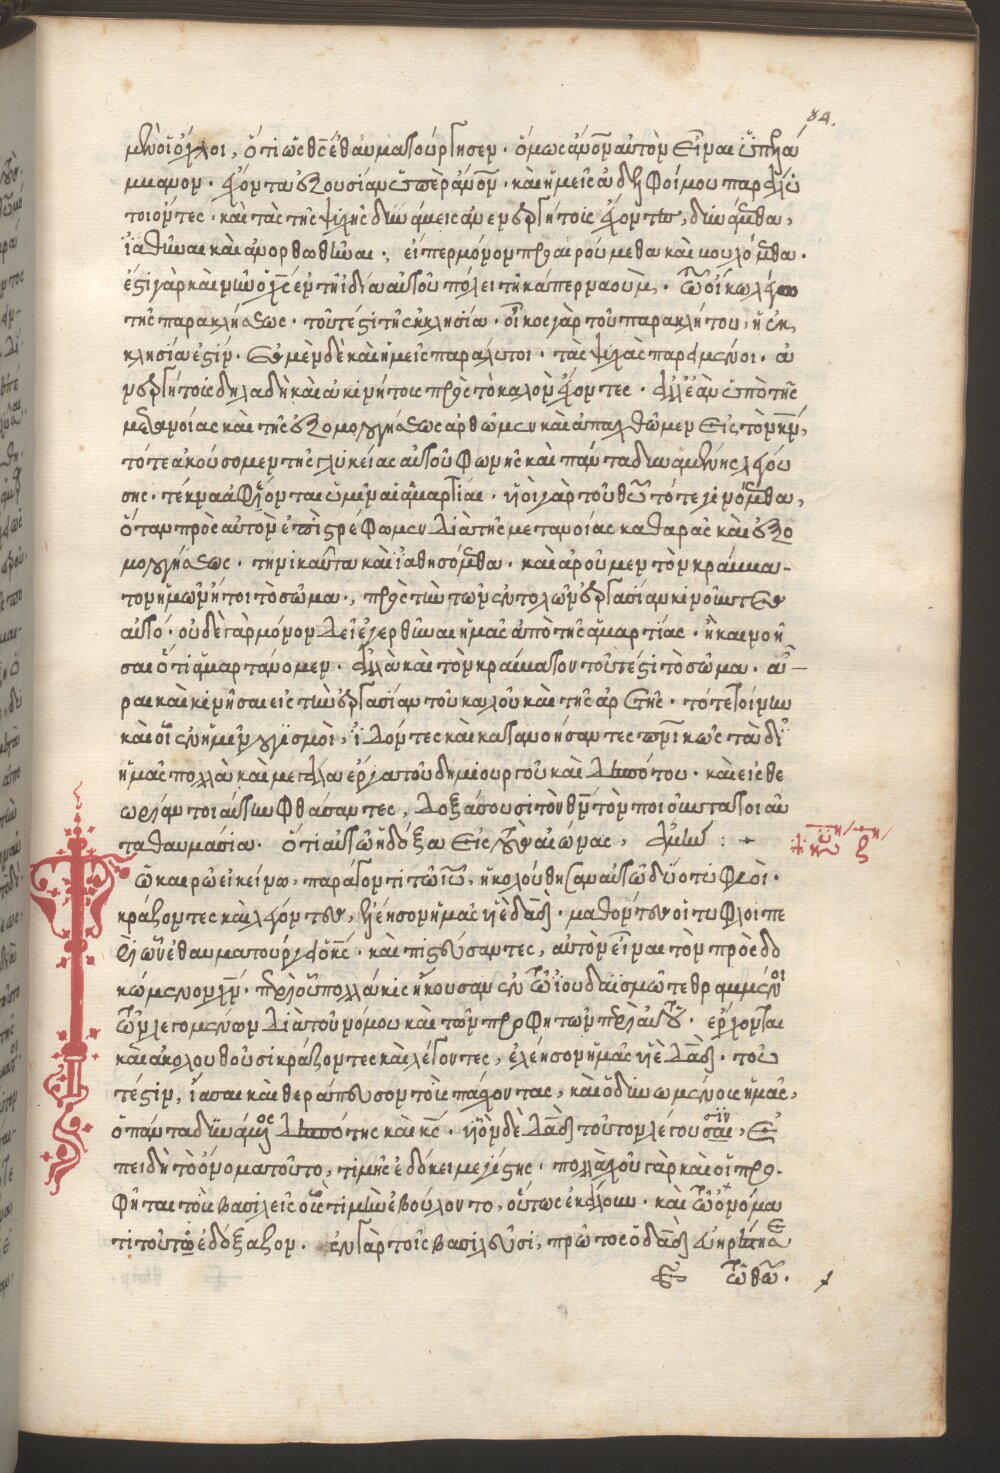 84.
μὲν οἱ ὄχλοι, ὅτι ὡς θς ἐθαυματούργησεν. ὅμως ἄνον αὐτὸν εἶναι
ἔχοντα ἐξουσίαν ὑπὲρ ἄνον. καὶ ἡμεῖς ἀδελφοί μου παρα
τὰς τῆς ψυχῆς δυνάμεις ἀνενεργήτους ἔχοντες, δυνάμεθα,
ἰαθῆναι καὶ ἀνορθωθῆναι. εἴπερ μόνον προαιρούμεθα καὶ βουλόμεθα.
ἔστι γὰρ καὶ νῦν ὁ χς ἐν τῇ ἰδία αὐτοῦ πόλει τῇ καπερναούμ. τῶ οἴκω λέγω
τῆς παρακλήσεως. τουτέστι τῆς ἐκκλησία. οἶκος γὰρ τοῦ παρακλήτου, ἡ ἐκ
κλησία ἐστίν. ἐσμὲν δὲ καὶ ἡμεῖς παράλυτοι. τὰς ψυχὰς παρειμένοι. ἀ
νενεργήτους δηλαδὴ καὶ ἀκινήτους πρὸς τὸ καλὸν ἔχοντες. ἀλλ' ἐὰν ὑπὸ τῆς
μετανοίας καὶ τῆς ἐξομολογήσεως ἀρθῶμεν καὶ ἀπέλθωμεν εἰς τὸν κν,
τότε ἀκούσομεν τῆς γλυκείας αὐτοῦ φωνῆς καὶ πάντα δυναμένης λεγού
σης. τέκνα ἀφέωνται ὑμῖν αἱ ἁμαρτίαι. υἱοὶ γὰρ τοῦ θυ τότε γινόμεθα,
ὅταν πρὸς αὐτὸν ἐπιστρέφωμεν διὰ τῆς μετανοίας καθαρᾶς καὶ ἐξο
μολογήσεως. τηνικαῦτα καὶ ἰαθησόμεθα. καὶ ἀροῦμεν τὸν κράββα-
τον ἡμῶν ἤτοι τὸ σῶμα, πρὸς τὴν τῶν ἐντολῶν ἐργασίαν κινοῦντες
αὐτό. οὐδὲ γὰρ μόνον δεῖ ἐγερθῆναι ἡμᾶς ἀπὸ τῆς ἁμαρτίας. ἢ καὶ νοῆ
σαι ὅτι ἁμαρτάνομεν. ἀλλὰ καὶ τὸν κράββατον τουτέστι τὸ σῶμα. ἆ-
ραι καὶ κινῆσαι εἰς τὴν ἐργασίαν τοῦ καλοῦ καὶ τῆς ἀρετῆς. τότε τοίνυν
καὶ οἱ ἐν ἡμῖν λογισμοὶ, ἰδόντες καὶ κατανοήσαντες πνικῶς τὰ δι'
ἡμᾶς πολλὰ καὶ μεγάλα ἔργα τοῦ δημιουργοῦ καὶ δεσπότου. καὶ εἰς θε
ωρίαν τοιαύτην φθάσαντες, δοξάσουσι τὸν θν τὸν ποιοῦντα τοιαῦ
τα θαυμάσια. ὅτι αὐτῶ ἡ δόξα εἰς τοὺς αἰῶνας, ἀμήν :
ῶ καιρῶ ἐκείνω, παράγοντι τῶ ιυ, ἠκολούθησαν αὐτῶ δύο τυφλοὶ.
κράζοντες καὶ λέγοντες, ἐλέησον ἡμᾶς υἱὲ δαδ. μαθόντες οἱ τυφλοὶ πε
ρὶ ὧν ἐθαυματούργει ὁ κς. καὶ πιστεύσαντες, αὐτὸν εἶναι τὸν προσδο
κώμενον χν. περὶ οὗ πολλάκις ἤκουσαν ἐν τῶ ἰουδαϊσμῶ τεθραμμένοι
τῶν λεγομένων διὰ τοῦ νόμου καὶ τῶν προφητῶν περὶ αὐτοῦ. ἔρχονται
καὶ ἀκολουθοῦσι κράζοντες καὶ λέγοντες, ἐλέησον ἡμᾶς υἱὲ δαδ. του
τέστιν, ἴασαι καὶ θεράπευσον τοὺς πάσχοντας, καὶ ὀδυνωμένους ἡμᾶς,
ὁ παντοδύναμος δεσπότης καὶ κς. υἱὸν δὲ δαδ τοῦτον λέγουσιν, ἐ
πειδὴ τὸ ὄνομα τοῦτο, τιμῆς ἐδόκει μεγίστης. πολλαχοῦ γὰρ καὶ οἱ προ-
φῆται τοὺς βασιλεῖς οὓς τιμᾶν ἐβούλοντο, οὕτως ἐκάλουν. καὶ τῶ ὀνόμα
τι τούτω ἐδόξαζον. ἐν γὰρ τοῖς βασιλεῦσι, πρῶτος ὁ δαδ
τῶ θω.